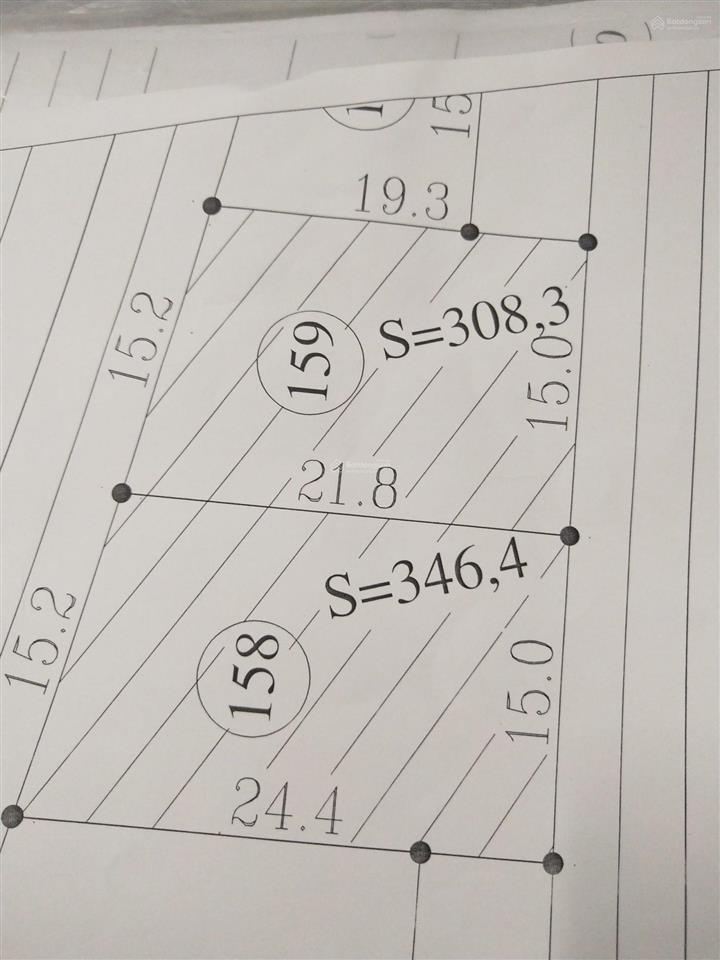 Batdongsan
15
19.3
15.2
159
S=308,3
15.0
21.8
15.2
S=346,4
158
15.0
24.4